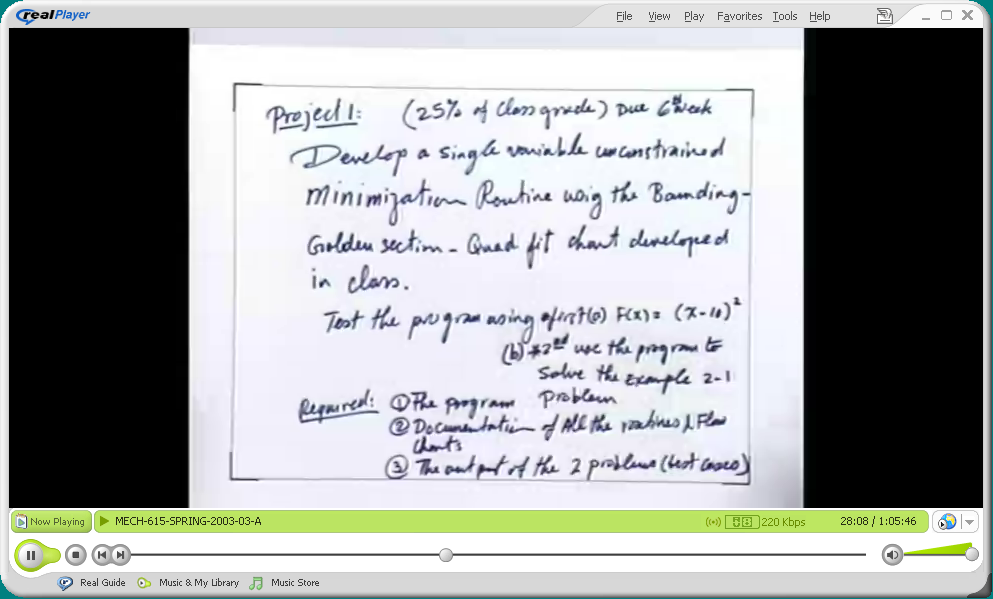 realPlayer
File View Play Favorites Tools Help
Project 1: (25% of Class grade) Due 6th week
Develop a single variable unconstrained
Minimization Routine using the Bounding-
Golden section - Quad fit chart developed
in class.
Test the program using first (a) F(x) = (x-10)²
(b) *2nd use the program to
Solve the Example 2-1
Problem
Required: ① The program
② Documentation of All the routines & Flow
Charts
③ The output of the 2 problems (test cases)
Now Playing MECH-615-SPRING-2003-03-A 220 Kbps 28:08 / 1:05:46
Real Guide Music & My Library Music Store